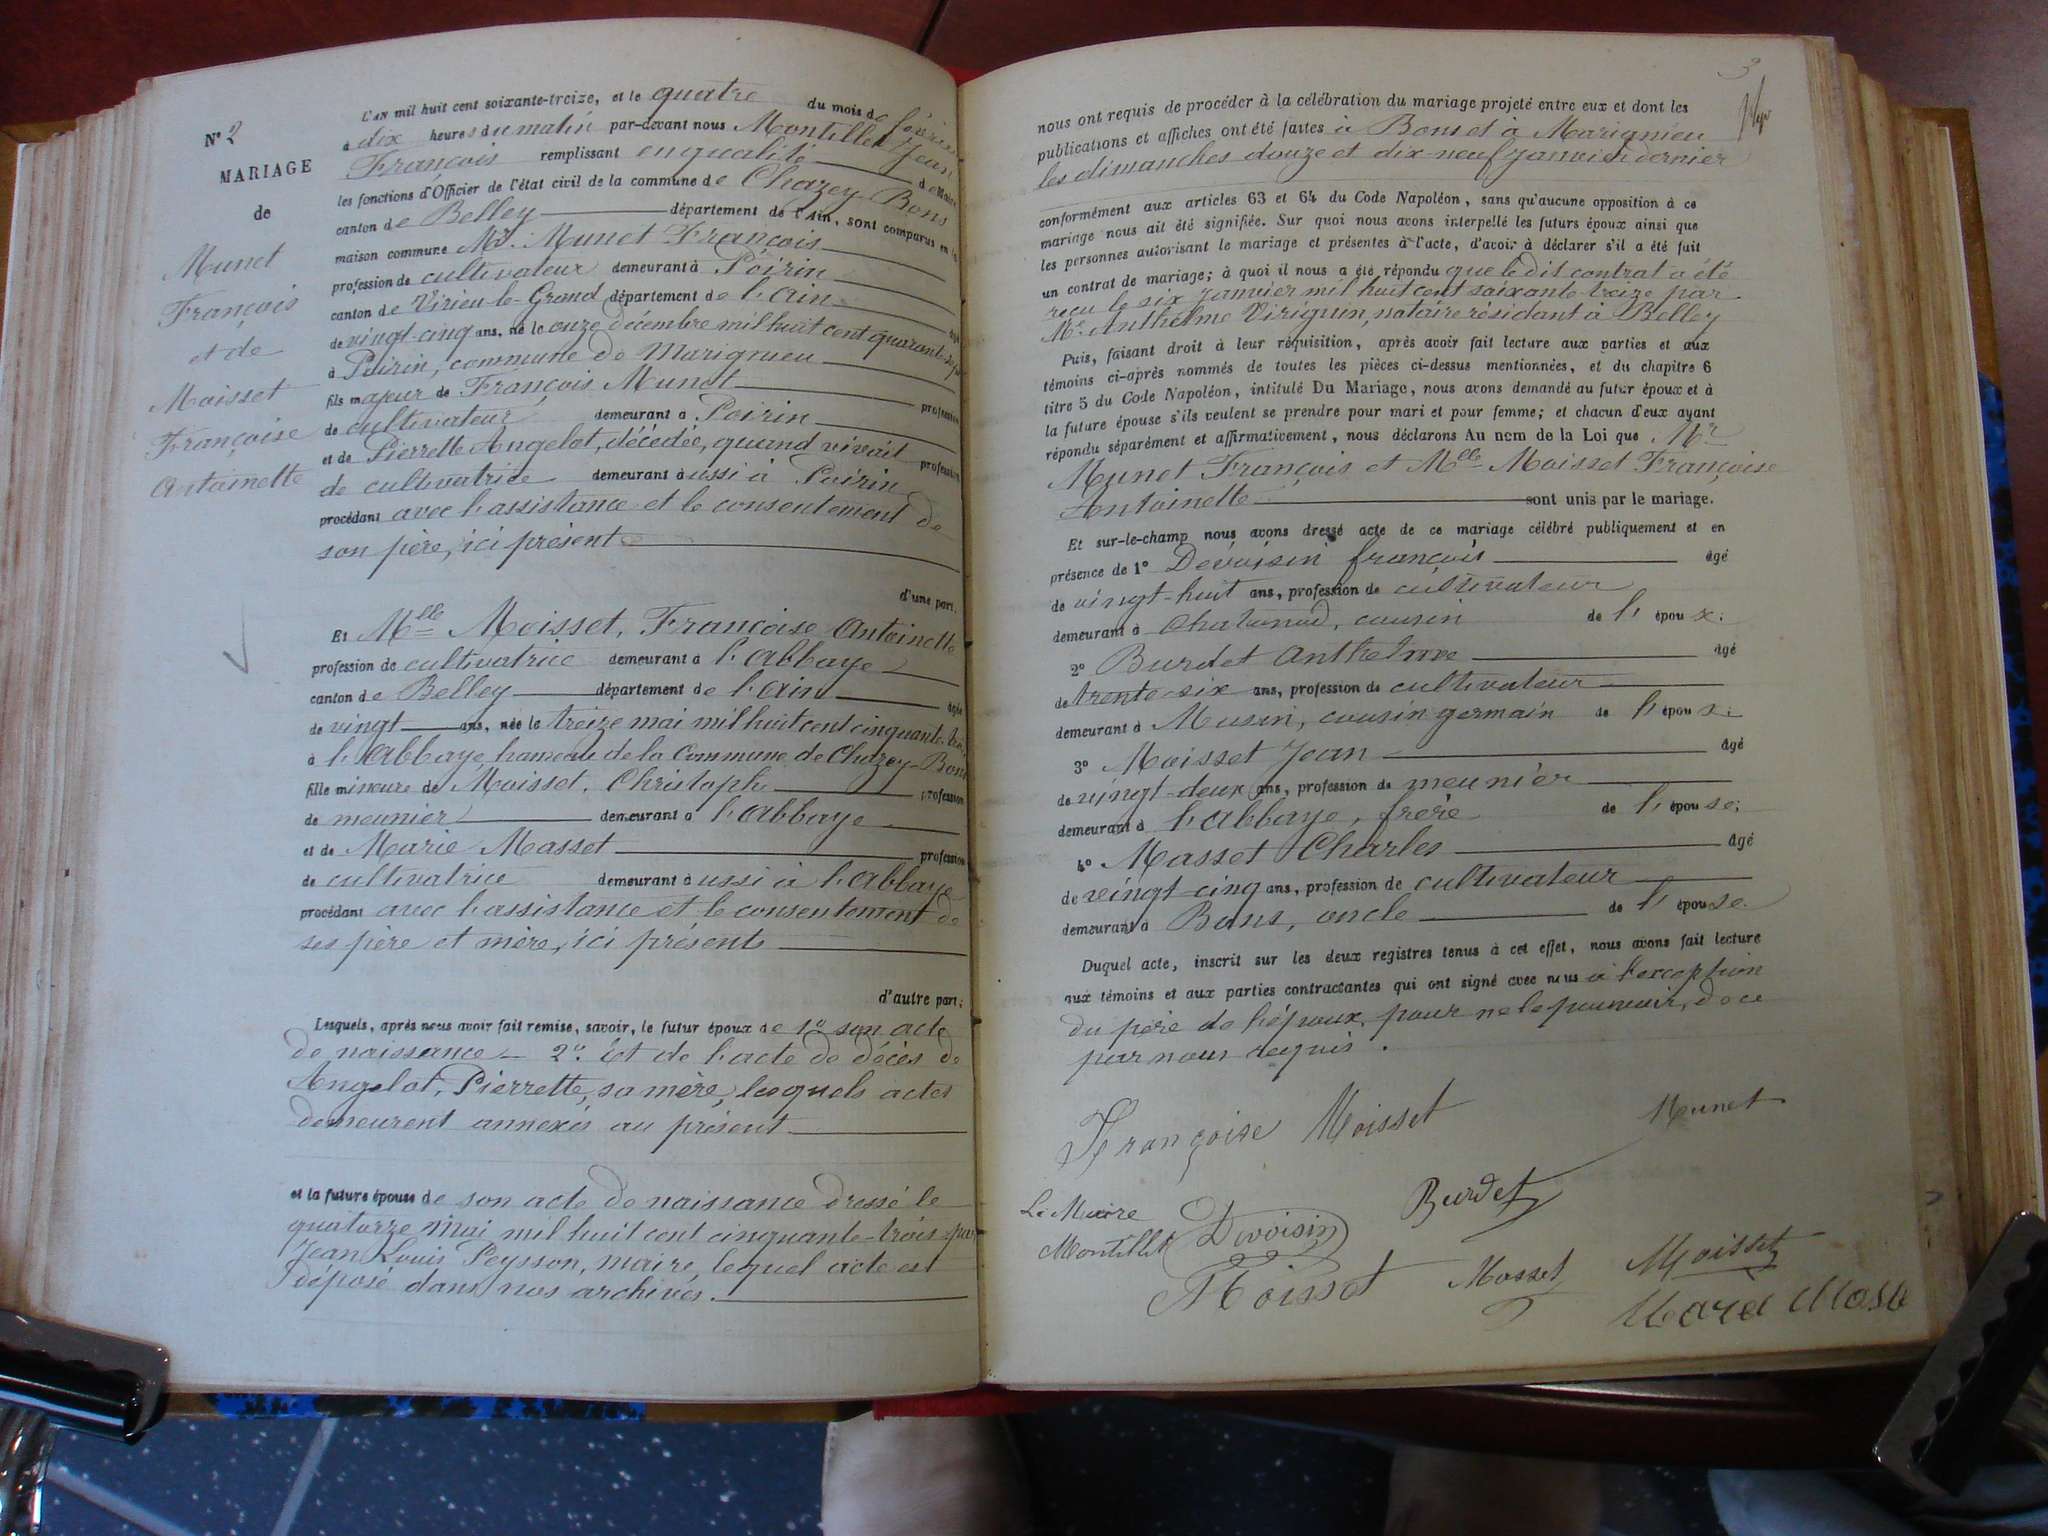 N° 2
MARIAGE
de
Munet
François
et de
Moisset
Françoise
Antoinette
L'AN mil huit cent soixante-treize, et le quatre du mois de février
à dix heures du matin par-devant nous Montillet Jean
François remplissant en qualité de Maire
les fonctions d'Officier de l'état civil de la commune de Chazey-Bons
canton de Belley département de l'Ain, sont comparus en la
maison commune Mr. Munet François
profession de cultivateur demeurant à Poirin
canton de Virieu-le-Grand département de l'Ain âgé
de vingt-cinq ans, né le onze décembre mil huit cent quarante-sept
à Poirin, commune de Marignieu
fils majeur de François Munet profession
de cultivateur demeurant à Poirin
et de Pierrette Angelot, décédée, quand vivait profession
de cultivatrice demeurant aussi à Poirin
procédant avec l'assistance et le consentement de
son père, ici présent
d'une part.
Et Mlle Moisset, Françoise Antoinette
profession de cultivatrice demeurant à l'Abbaye
canton de Belley département de l'Ain âgée
de vingt ans, née le treize mai mil huit cent cinquante-trois
à l'Abbaye hameau de la Commune de Chazey-Bons
fille mineure de Moisset, Christophe profession
de meunier demeurant à l'Abbaye
et de Marie Masset profession
de cultivatrice demeurant aussi à l'Abbaye
procédant avec l'assistance et le consentement de
ses père et mère, ici présents
d'autre part;
Lesquels, après nous avoir fait remise, savoir, le futur époux de 1° son acte
de naissance – 2° Et de l'acte de décès de
Angelot, Pierrette, sa mère, lesquels actes
demeurent annexés au présent
et la future épouse de son acte de naissance dressé le
quatorze mai mil huit cent cinquante-trois par
Jean Louis Peysson, maire, lequel acte est
déposé dans nos archives.
3
nous ont requis de procéder à la célébration du mariage projeté entre eux et dont les
publications et affiches ont été faites à Bons et à Marignieu
les dimanches douze et dix-neuf janvier dernier
conformément aux articles 63 et 64 du Code Napoléon, sans qu'aucune opposition à ce
mariage nous ait été signifiée. Sur quoi nous avons interpellé les futurs époux ainsi que
les personnes autorisant le mariage et présentes à l'acte, d'avoir à déclarer s'il a été fait
un contrat de mariage; à quoi il nous a été répondu que le dit contrat a été
reçu le six janvier mil huit cent soixante-treize par
Me Anthelme Viriguin, notaire résidant à Belley
Puis, faisant droit à leur réquisition, après avoir fait lecture aux parties et aux
témoins ci-après nommés de toutes les pièces ci-dessus mentionnées, et du chapitre 6
titre 5 du Code Napoléon, intitulé Du Mariage, nous avons demandé au futur époux et à
la future épouse s'ils veulent se prendre pour mari et pour femme; et chacun d'eux ayant
répondu séparément et affirmativement, nous déclarons Au nom de la Loi que Mr
Munet François et Mlle Moisset Françoise
Antoinette sont unis par le mariage.
Et sur-le-champ nous avons dressé acte de ce mariage célébré publiquement et en
présence de 1° Devoisin françois âgé
de vingt-huit ans, profession de cultivateur
demeurant à Chatonod, cousin de l'époux;
2° Burdet Anthelme âgé
de trente-six ans, profession de cultivateur
demeurant à Musin, cousin germain de l'époux;
3° Moisset Jean âgé
de vingt-deux ans, profession de meunier
demeurant à l'Abbaye, frère de l'épouse;
4° Masset Charles âgé
de vingt-cinq ans, profession de cultivateur
demeurant à Bons, oncle de l'épouse.
Duquel acte, inscrit sur les deux registres tenus à cet effet, nous avons fait lecture
aux témoins et aux parties contractantes qui ont signé avec nous à l'exception
du père de l'époux, pour ne le pouvoir, de ce
par nous requis.
Françoise Moisset Munet
Le Maire
Montillet Devoisin Burdet
Moisset Masset Moisset